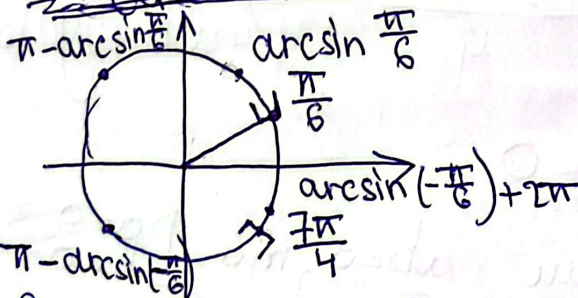 π-arcsin π/6
arcsin π/6
π/6
arcsin(-π/6)+2π
7π/4
π-arcsin(-π/6)